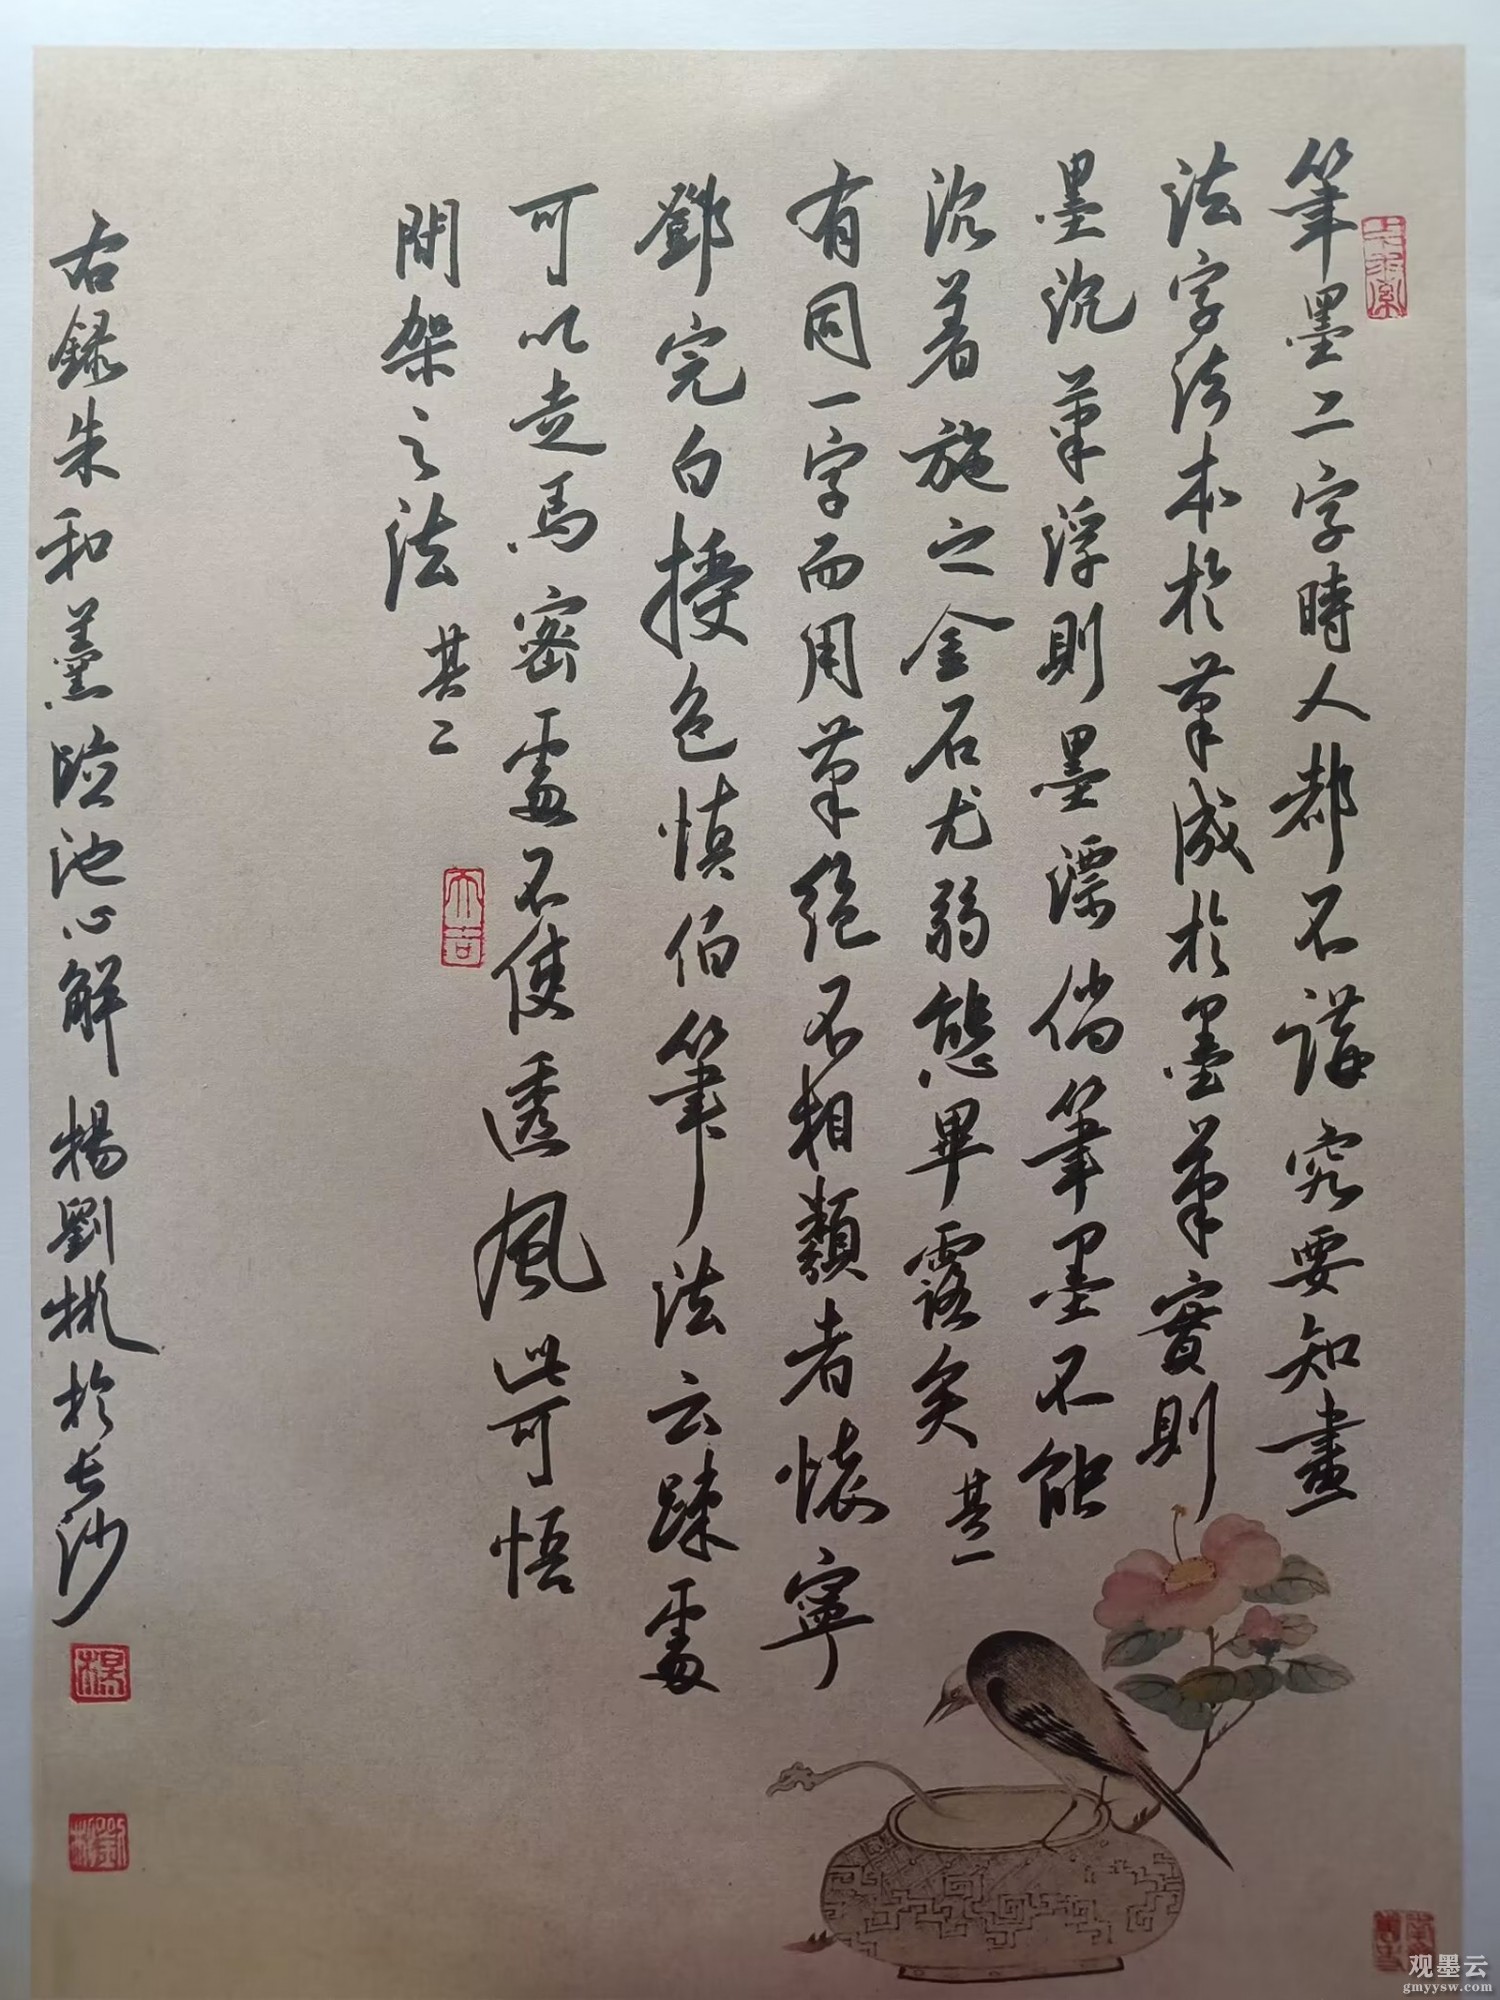 筆墨二字時人都不講究要知畫
法字法本於筆成於墨筆實則
墨沉筆浮則墨漂倘筆墨不能
沉着施之金石尤弱態畢露矣 其一
有同一字而用筆絕不相類者懷寧
鄧完白授包慎伯筆法云踈處
可以走馬密處不使透風此可悟
間架之法 其二
大吉
右録朱和羹臨池心解 楊劉於長沙
楊
观墨云
gmyysw.com